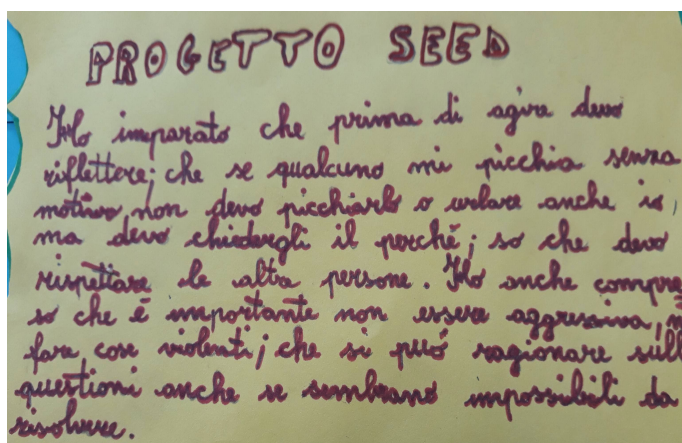 PROGETTO SEED
Ho imparato che prima di agire devo
riflettere; che se qualcuno mi picchia senza
motivo, non devo picchiarlo o urlare anche io,
ma devo chiedergli il perché; so che devo
rispettare le altre persone. Ho anche compre
so che é importante non essere aggressiva,
fare cose violenti; che si può ragionare sull
questioni anche se sembrano impossibili da
risolvere.